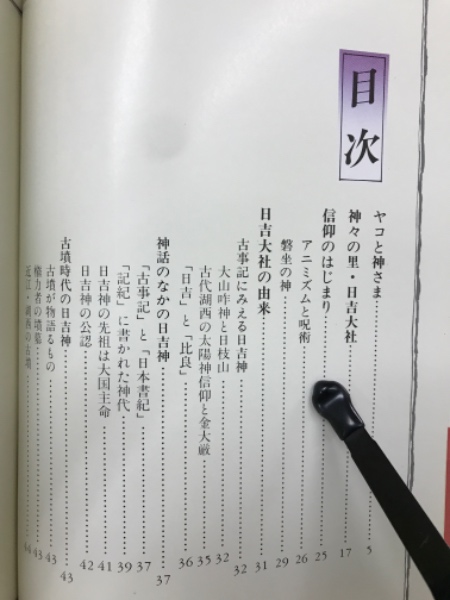 目次
ヤコと神さま……5
神々の里・日吉大社……17
信仰のはじまり……25
アニミズムと呪術……26
磐坐の神……29
日吉大社の由来……31
古事記にみえる日吉神……32
大山咋神と日枝山……32
古代湖西の太陽神信仰と金大巌……35
「日吉」と「比良」……36
神話のなかの日吉神……37
「古事記」と「日本書紀」……37
「記紀」に書かれた神代……39
日吉神の先祖は大国主命……41
日吉神の公認……42
古墳時代の日吉神……43
古墳が物語るもの……43
権力者の墳墓……43
近江・湖西の古墳……44